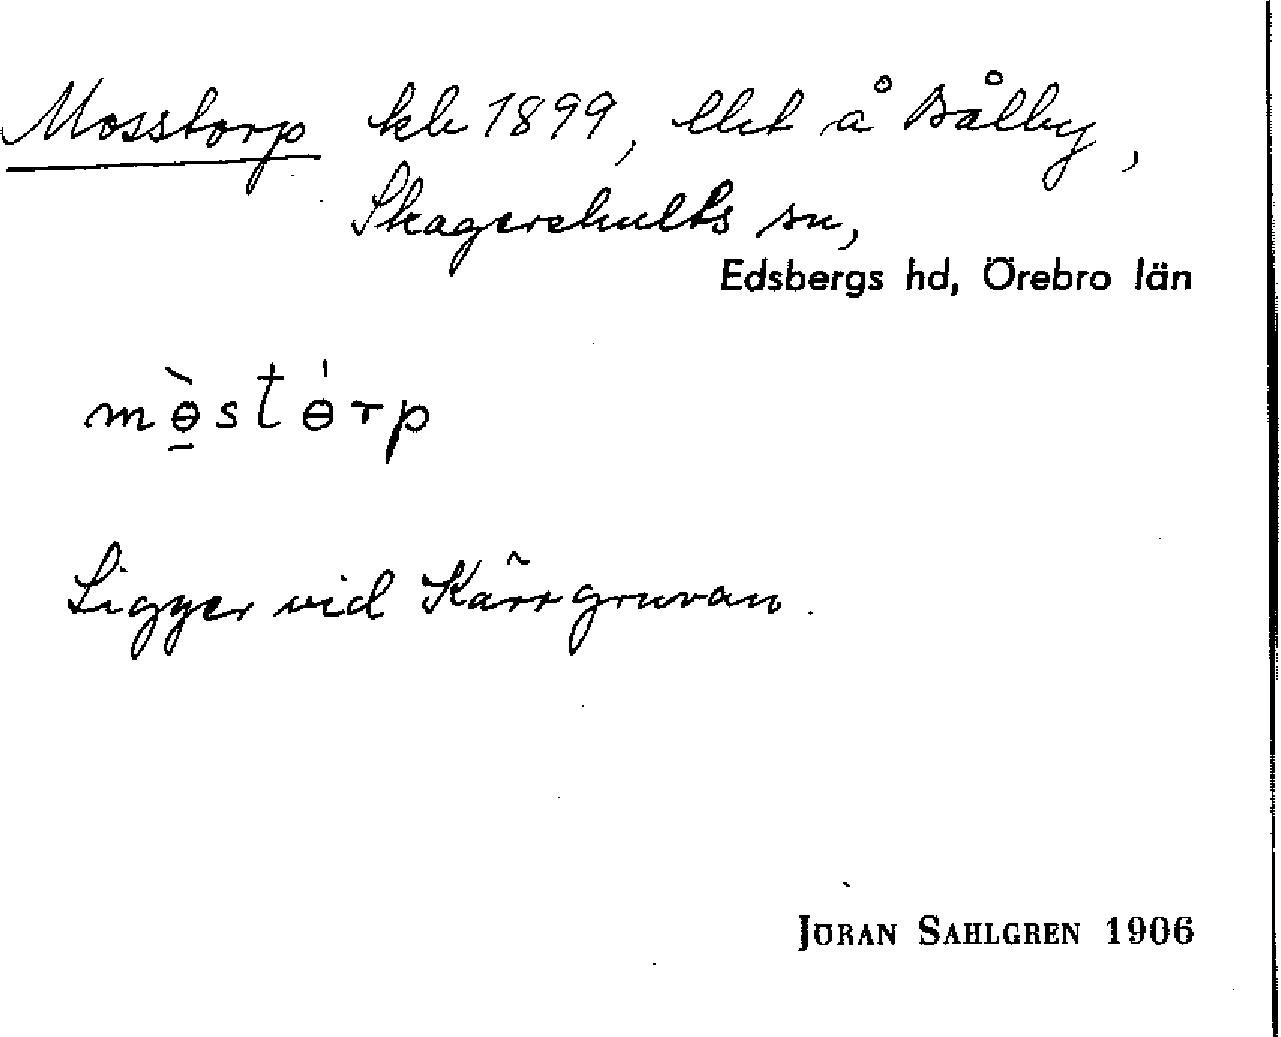 Mosstorp kb 1899, llht å Bålby,
Skagershults sn,
Edsbergs hd, Örebro län
mɵ̱̀stɵ́rp
Ligger vid Kärrgruvan.
JÖRAN SAHLGREN 1906